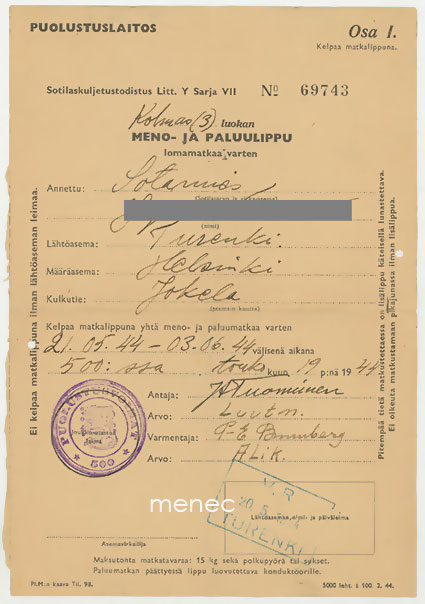 PUOLUSTUSLAITOS
Osa I.
Kelpaa matkalippuna.
Sotilaskuljetustodistus Litt. Y Sarja VII No 69743
Kolmas (3) luokan
MENO- JA PALUULIPPU
lomamatkaa varten
Annettu: Sotamies
(nimi)
Lähtöasema: Turenki.
Määräasema: Helsinki
Kulkutie: Jokela
Kelpaa matkalippuna yhtä meno- ja paluumatkaa varten
21.05-44 - 03.06.44 välisenä aikana
500: ssa touko kuun 19 p:nä 1944
Antaja: Tuominen
Arvo: Luutn.
Varmentaja: P-E
Arvo: Alik.
PUOLUSTUSVOIMAT
500
menec
V.R
20.5.
TURENKI
Lähtöaseman nimi- ja päiväleima
Asemavirkailija
Maksutonta matkatavaraa: 15 kg sekä polkupyörä tai sukset.
Paluumatkan päättyessä lippu luovutettava konduktöörille.
PLM:n kaava Td. 98.
5000 leht. à 100. 2. 44.
Ei kelpaa matkalippuna ilman lähtöaseman leimaa.
Pitempää tietä matkustettaessa on lisälippu käteisellä lunastettava.
Ei oikeuta matkustamaan pikajunassa ilman lisälippua.